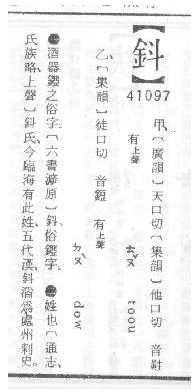 【鈄】
41097
甲、〔廣韻〕天口切〔集韻〕他口切 音黈
有上聲 ㄊㄡˇ toou
乙、〔集韻〕徒口切 音鋀 有上聲
ㄉㄡˋ dow
㊀酒器鋀之俗字。〔六書溯原〕鈄俗鋀字。㊁姓也〔通志、
氏族略上聲〕鈄氏、今臨海有此姓、五代漢、鈄滔爲處州刺史。